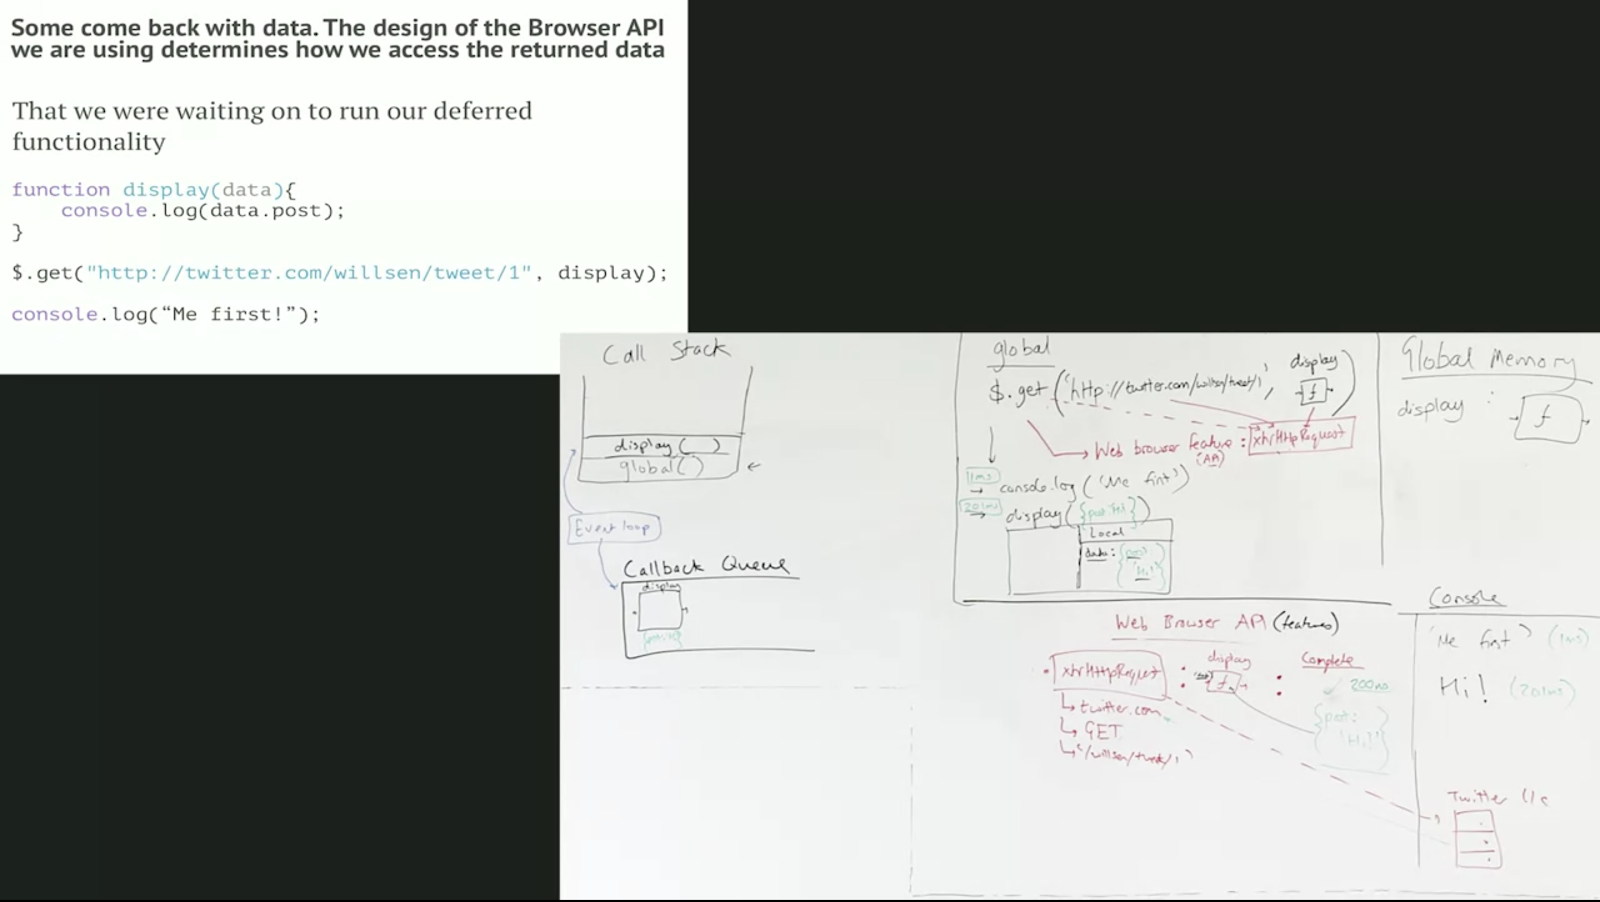 Some come back with data. The design of the Browser API
we are using determines how we access the returned data
That we were waiting on to run our deferred
functionality
function display(data){
console.log(data.post);
}
$.get("http://twitter.com/willsen/tweet/1", display);
console.log(“Me first!”);
Call Stack
display( )
global()
Event loop
Callback Queue
display
global
$.get('http://twitter.com/willsen/tweet/1', display)
f
Web browser feature : xhrHttpRequest
(API)
1ms
console.log('Me first')
201ms
display({post:'Hi'})
Local
data: {post:
'Hi!'}
Global Memory
display : f
Web Browser API (features)
xhrHttpRequest : display f : Complete
200ms
twitter.com
GET
'/willsen/tweet/1'
{post:
'Hi!'}
Console
'Me first' (1ms)
Hi! (201ms)
Twitter